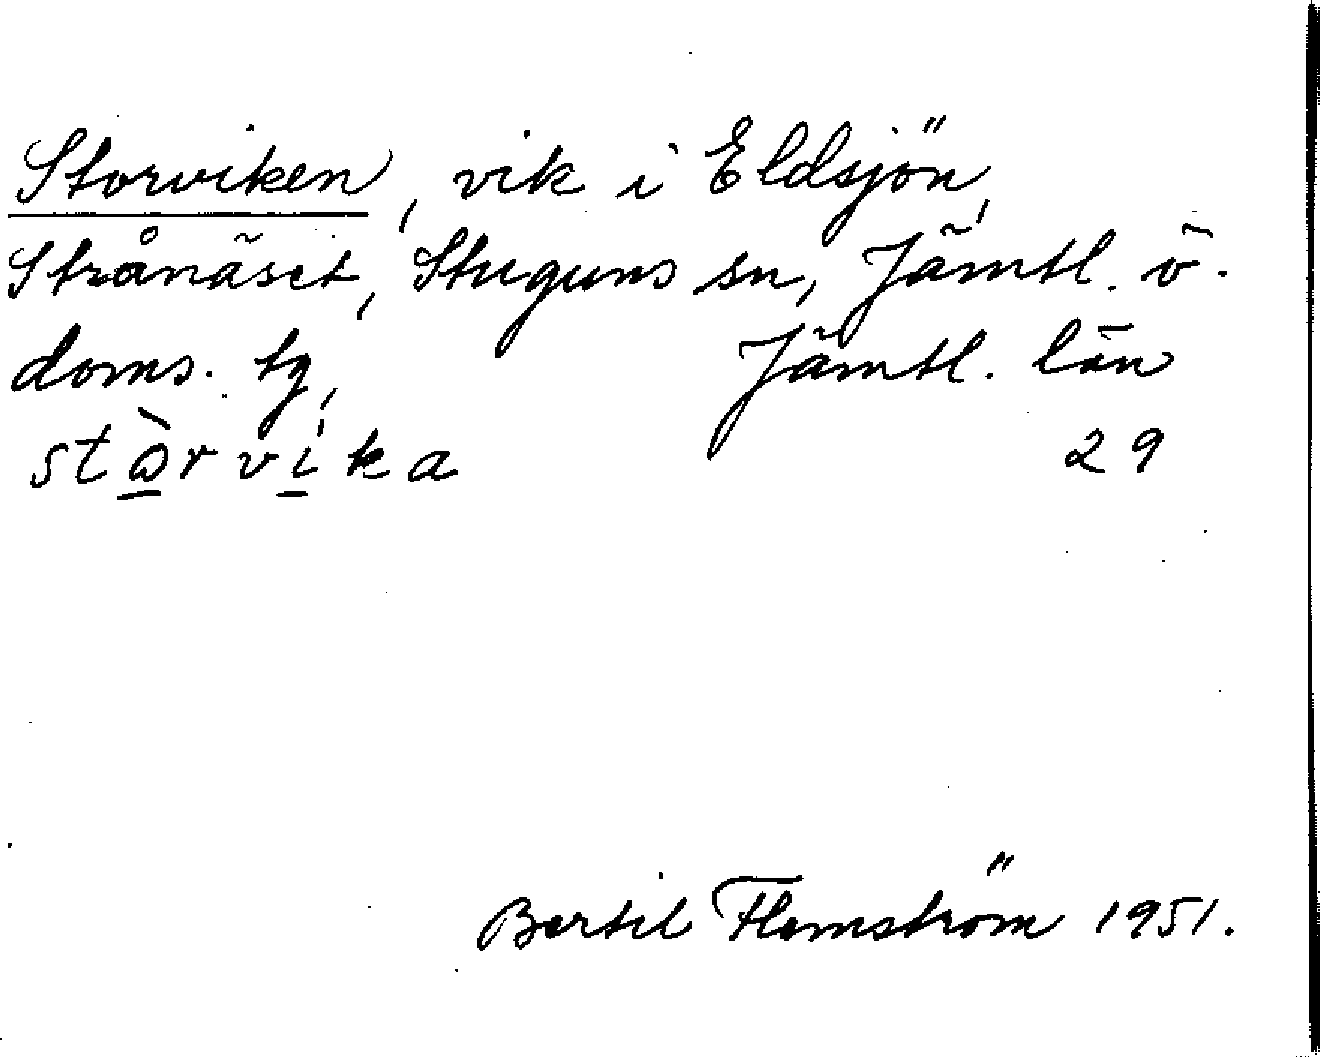 Storviken, vik i Eldsjön,
Strånäset, Stuguns sn, Jämtl. ö.
doms. tg, Jämtl. län
stɷ̀rvíka 29
Bertil Flemström 1951.